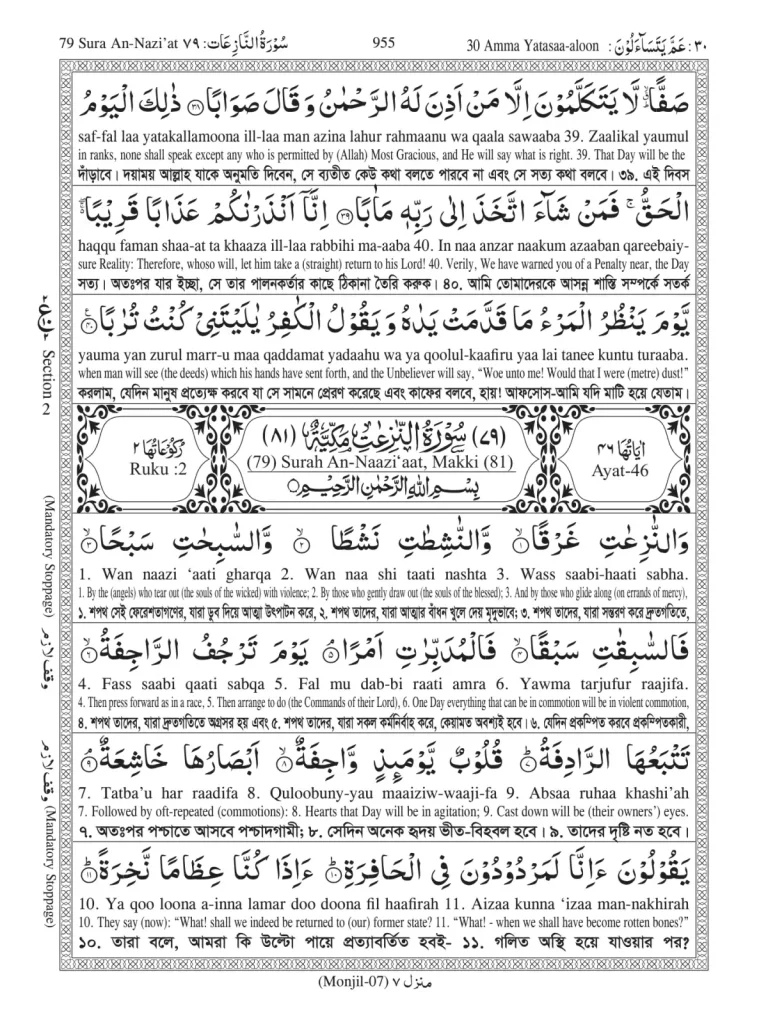 79 Sura An-Nazi'at سُوْرَةُ النَّازِعَات: ٧٩
955
30 Amma Yatasaa-aloon : عَمَّ يَتَسَآءَلُوْنَ : ٣٠
صَفًّا ۙۗ لَّا يَتَكَلَّمُوْنَ اِلَّا مَنْ اَذِنَ لَهُ الرَّحْمٰنُ وَ قَالَ صَوَابًا ﴿٣٨﴾ ذٰلِكَ الْيَوْمُ
saf-fal laa yatakallamoona ill-laa man azina lahur rahmaanu wa qaala sawaaba 39. Zaalikal yaumul
in ranks, none shall speak except any who is permitted by (Allah) Most Gracious, and He will say what is right. 39. That Day will be the
দাঁড়াবে। দয়াময় আল্লাহ যাকে অনুমতি দিবেন, সে ব্যতীত কেউ কথা বলতে পারবে না এবং সে সত্য কথা বলবে। ৩৯. এই দিবস
الْحَقُّ ۚ فَمَنْ شَآءَ اتَّخَذَ اِلٰى رَبِّهٖ مَاٰبًا ﴿٣٩﴾ اِنَّآ اَنْذَرْنٰكُمْ عَذَابًا قَرِيْبًا ۖۚ
haqqu faman shaa-at ta khaaza ill-laa rabbihi ma-aaba 40. In naa anzar naakum azaaban qareebaiy-
sure Reality: Therefore, whoso will, let him take a (straight) return to his Lord! 40. Verily, We have warned you of a Penalty near, the Day
সত্য। অতঃপর যার ইচ্ছা, সে তার পালনকর্তার কাছে ঠিকানা তৈরি করুক। ৪০. আমি তোমাদেরকে আসন্ন শাস্তি সম্পর্কে সতর্ক
يَّوْمَ يَنْظُرُ الْمَرْءُ مَا قَدَّمَتْ يَدٰهُ وَ يَقُوْلُ الْكٰفِرُ يٰلَيْتَنِيْ كُنْتُ تُرٰبًا ﴿٤٠﴾
yauma yan zurul marr-u maa qaddamat yadaahu wa ya qoolul-kaafiru yaa lai tanee kuntu turaaba.
when man will see (the deeds) which his hands have sent forth, and the Unbeliever will say, “Woe unto me! Would that I were (metre) dust!”
করলাম, যেদিন মানুষ প্রত্যেক্ষ করবে যা সে সামনে প্রেরণ করেছে এবং কাফের বলবে, হায়! আফসোস-আমি যদি মাটি হয়ে যেতাম।
Section 2
اٰيَاتُهَا ٤٦
Ayat-46
(٧٩) سُوْرَةُ النّٰزِعٰتِ مَكِّيَّةٌ (٨١)
(79) Surah An-Naazi‘aat, Makki (81)
بِسْمِ اللهِ الرَّحْمٰنِ الرَّحِيْمِ
رُكُوْعَاتُهَا ٢
Ruku :2
وَالنّٰزِعٰتِ غَرْقًا ﴿١﴾ وَّالنّٰشِطٰتِ نَشْطًا ﴿٢﴾ وَّالسّٰبِحٰتِ سَبْحًا ﴿٣﴾
1. Wan naazi ‘aati gharqa 2. Wan naa shi taati nashta 3. Wass saabi-haati sabha.
1. By the (angels) who tear out (the souls of the wicked) with violence; 2. By those who gently draw out (the souls of the blessed); 3. And by those who glide along (on errands of mercy),
১. শপথ সেই ফেরেশতাগণের, যারা ডুব দিয়ে আত্মা উৎপাটন করে, ২. শপথ তাদের, যারা আত্মার বাঁধন খুলে দেয় মৃদুভাবে; ৩. শপথ তাদের, যারা সন্তরণ করে দ্রুতগতিতে,
فَالسّٰبِقٰتِ سَبْقًا ﴿٤﴾ فَالْمُدَبِّرٰتِ اَمْرًا ﴿٥﴾ يَوْمَ تَرْجُفُ الرَّاجِفَةُ ﴿٦﴾
4. Fass saabi qaati sabqa 5. Fal mu dab-bi raati amra 6. Yawma tarjufur raajifa.
4. Then press forward as in a race, 5. Then arrange to do (the Commands of their Lord), 6. One Day everything that can be in commotion will be in violent commotion,
৪. শপথ তাদের, যারা দ্রুতগতিতে অগ্রসর হয় এবং ৫. শপথ তাদের, যারা সকল কর্মনির্বাহ করে, কেয়ামত অবশ্যই হবে। ৬. যেদিন প্রকম্পিত করবে প্রকম্পিতকারী,
(Mandatory Stoppage) وقف لازم
تَتْبَعُهَا الرَّادِفَةُ ﴿٧﴾ قُلُوْبٌ يَّوْمَئِذٍ وَّاجِفَةٌ ﴿٨﴾ اَبْصَارُهَا خَاشِعَةٌ ﴿٩﴾
7. Tatba’u har raadifa 8. Quloobuny-yau maaiziw-waaji-fa 9. Absaa ruhaa khashi’ah
7. Followed by oft-repeated (commotions): 8. Hearts that Day will be in agitation; 9. Cast down will be (their owners’) eyes.
৭. অতঃপর পশ্চাতে আসবে পশ্চাদগামী; ৮. সেদিন অনেক হৃদয় ভীত-বিহবল হবে। ৯. তাদের দৃষ্টি নত হবে।
وقف لازم (Mandatory Stoppage)
يَقُوْلُوْنَ ءَاِنَّا لَمَرْدُوْدُوْنَ فِى الْحَافِرَةِ ﴿١٠﴾ ءَاِذَا كُنَّا عِظَامًا نَّخِرَةً ﴿١١﴾
10. Ya qoo loona a-inna lamar doo doona fil haafirah 11. Aizaa kunna ‘izaa man-nakhirah
10. They say (now): “What! shall we indeed be returned to (our) former state? 11. “What! - when we shall have become rotten bones?”
১০. তারা বলে, আমরা কি উল্টো পায়ে প্রত্যাবর্তিত হবই- ১১. গলিত অস্থি হয়ে যাওয়ার পর?
(Monjil-07) منزل ٧